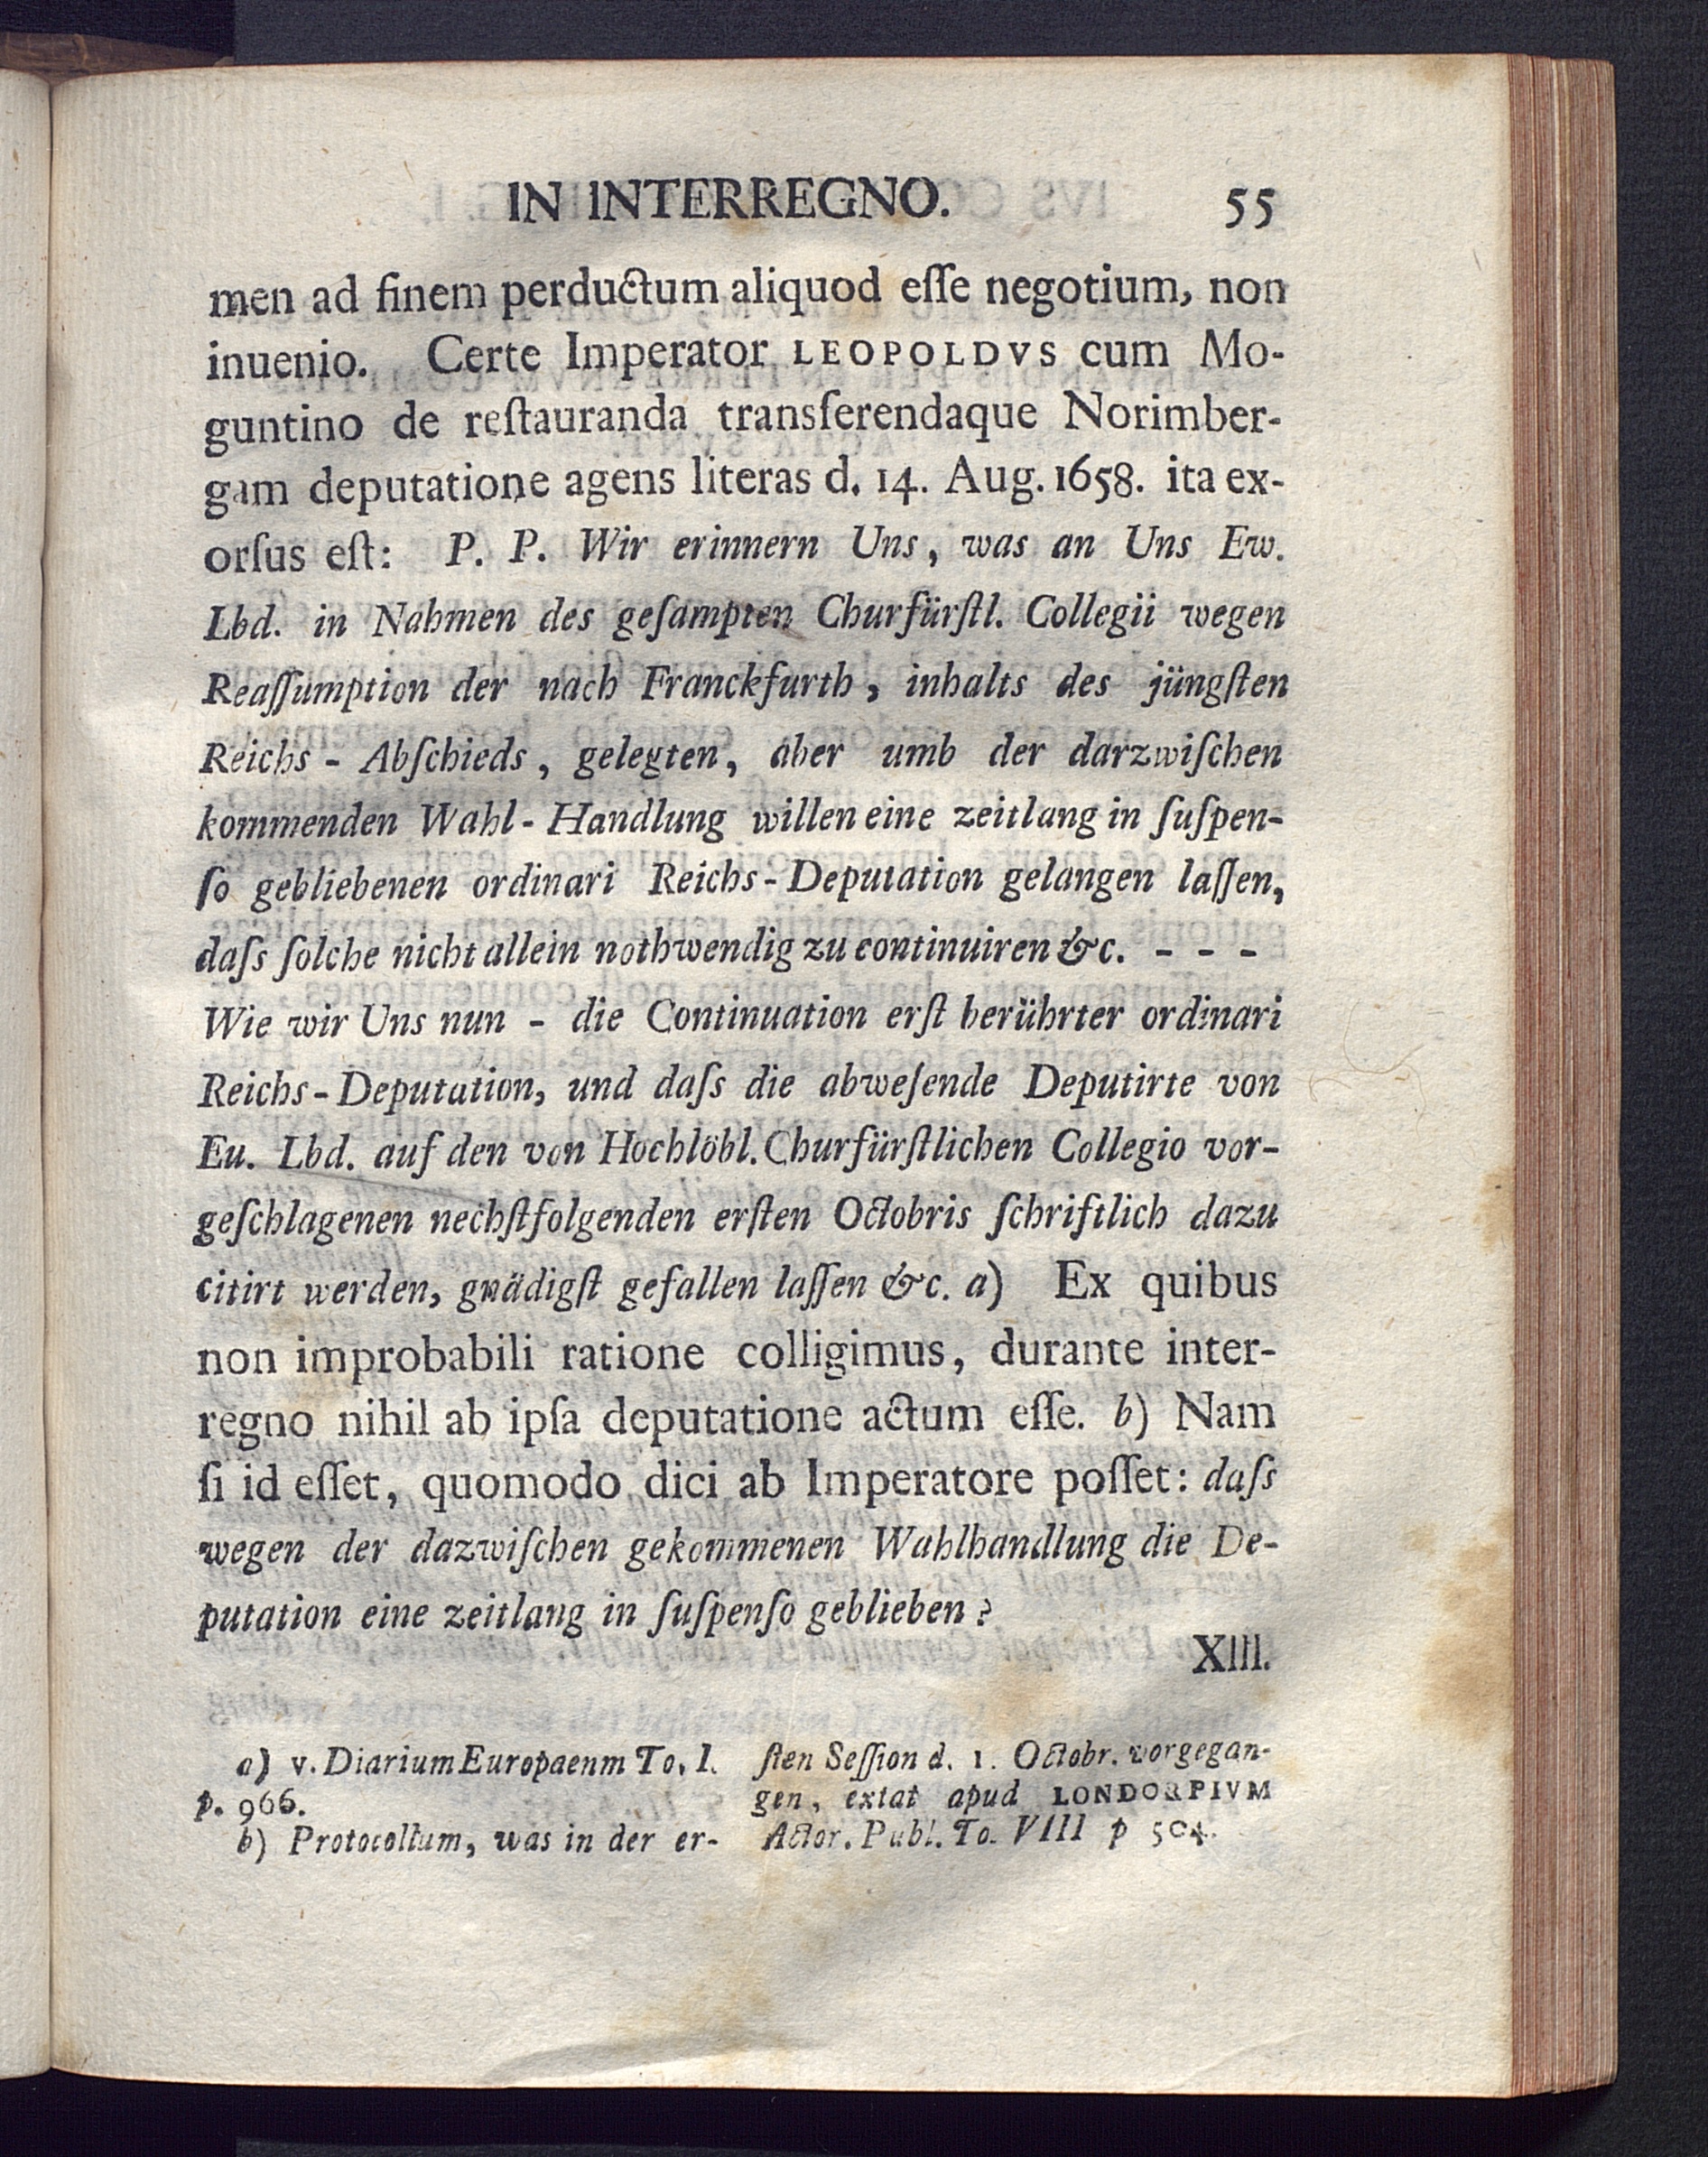 IN INTERREGNO. 55
men ad finem perductum aliquod eſſe negotium, non
inuenio. Certe Imperator LEOPOLDVS cum Mo-
guntino de reſtauranda transferendaque Norimber-
gam deputatione agens literas d. 14. Aug. 1658. ita ex-
orſus eſt: P. P. Wir erinnern Uns, was an Uns Ew.
Lbd. in Nahmen des geſampten Churfürſtl. Collegii wegen
Reaſſumption der nach Franckfurth, inhalts des jüngſten
Reichs - Abſchieds, gelegten, aber umb der darzwiſchen
kommenden Wahl - Handlung willen eine zeitlang in ſuſpen-
ſo gebliebenen ordinari Reichs - Deputation gelangen laſſen,
daſs ſolche nicht allein nothwendig zu continuiren &c. - - -
Wie wir Uns nun - die Continuation erſt berührter ordinari
Reichs - Deputation, und daſs die abweſende Deputirte von
Eu. Lbd. auf den von Hochlöbl. Churfürſtlichen Collegio vor-
geſchlagenen nechſtfolgenden erſten Octobris ſchriftlich dazu
citirt werden, gnädigſt gefallen laſſen &c. a) Ex quibus
non improbabili ratione colligimus, durante inter-
regno nihil ab ipſa deputatione actum eſſe. b) Nam
ſi id eſſet, quomodo dici ab Imperatore poſſet: daſs
wegen der dazwiſchen gekommenen Wahlhandlung die De-
putation eine zeitlang in ſuſpenſo geblieben?
XIII.
a) v. Diarium Europaenm To. I.
p. 966.
b) Protocollum, was in der er-
ſten Seſſion d. 1. Octobr. vorgegan-
gen, extat apud LONDORPIVM
Actor. Publ. To. VIII p 504.